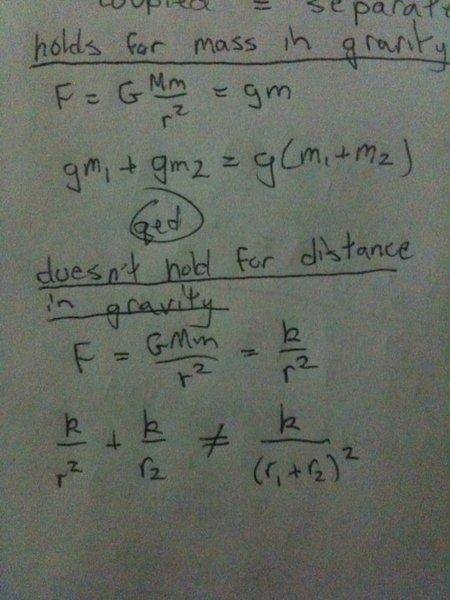 coupled = separat
holds for mass in gravity
F = G Mm/r² = gm
gm₁ + gm₂ = g(m₁+m₂)
qed
doesn't hold for distance
in gravity
F = GMm/r² = k/r²
k/r² + k/r₂ ≠ k/(r₁+r₂)²